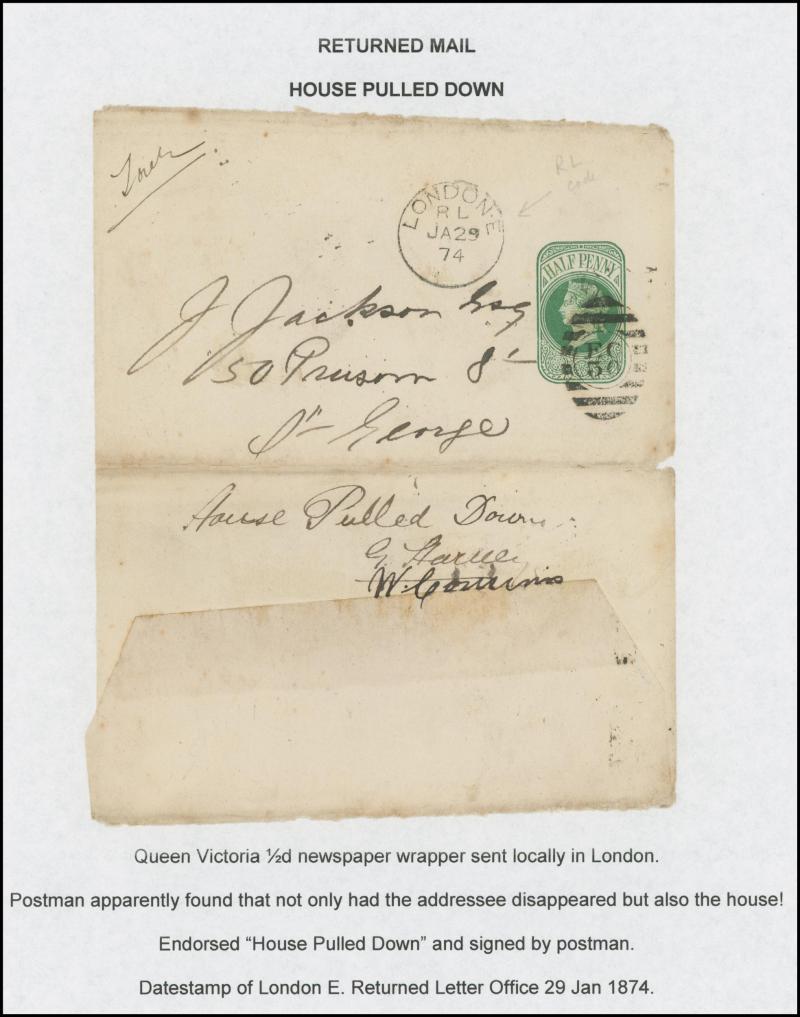 RETURNED MAIL
HOUSE PULLED DOWN
RL
code
LONDON.E
RL
JA29
74
HALF PENNY
J Jackson Esq
50 Prusom St
St George
House Pulled Down
W. Comins
Queen Victoria ½d newspaper wrapper sent locally in London.
Postman apparently found that not only had the addressee disappeared but also the house!
Endorsed “House Pulled Down” and signed by postman.
Datestamp of London E. Returned Letter Office 29 Jan 1874.